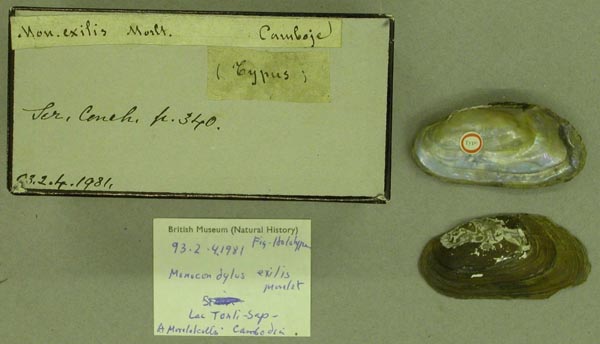 Mon. exilis Morlt. Camboje
(Typus)
Ser. Conch. p. 340.
93.2.4.1981.
TYPE
British Museum (Natural History)
93.2.4.1981 Fig. Holotype
Monocondylus exilis
morelet
Lac Tonli-Sap -
A Morelet coll. Cambodia.